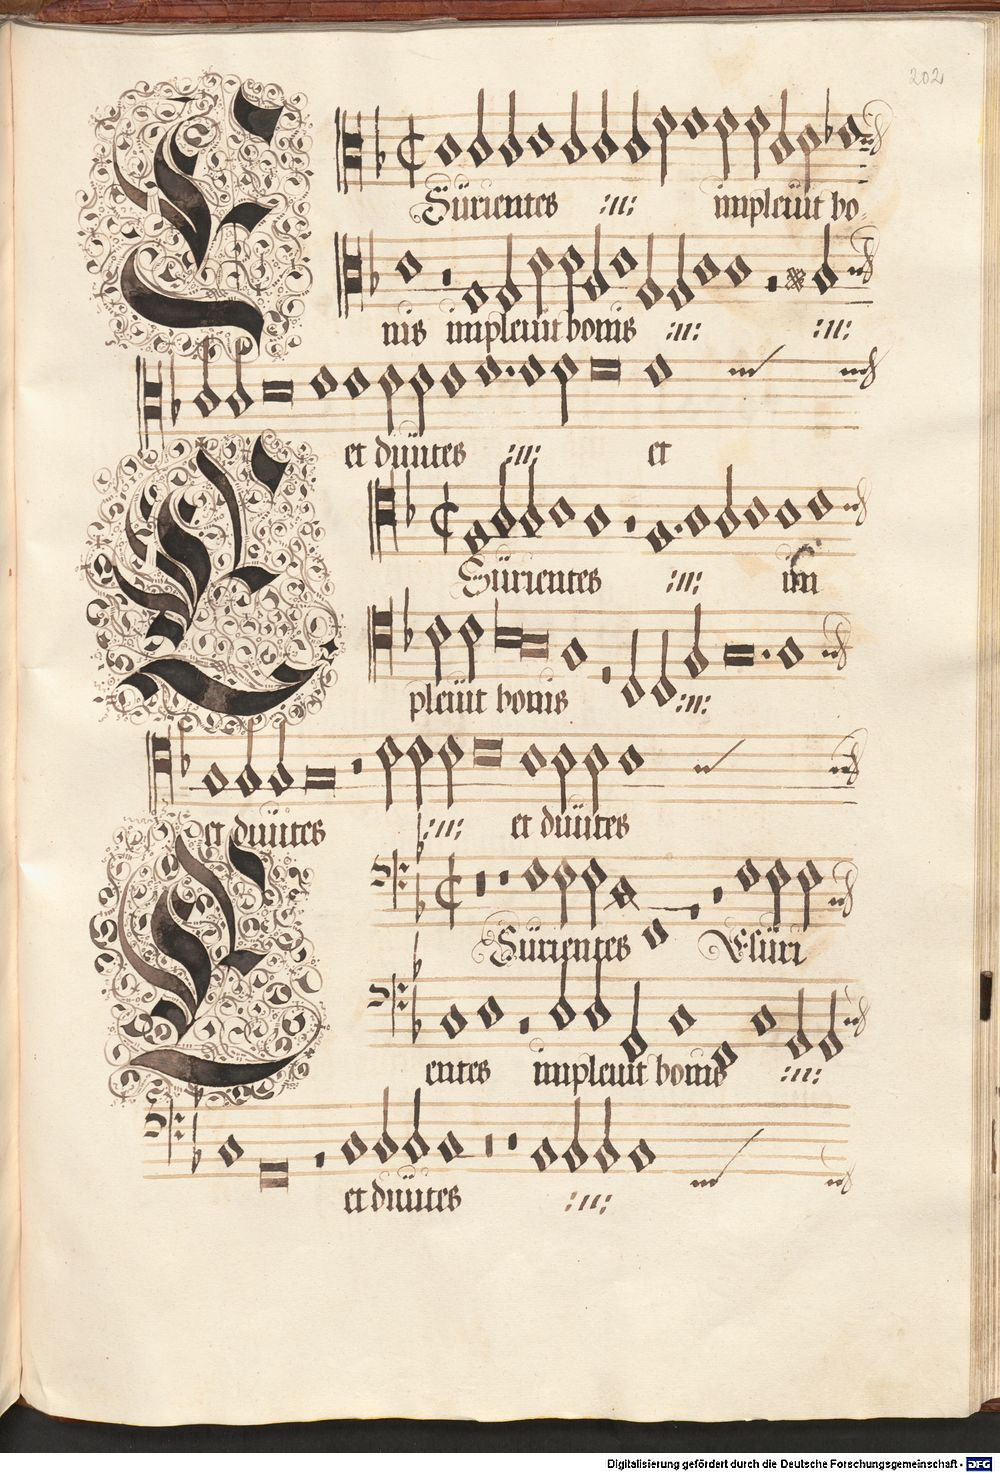 202
Esürientes :॥: impleuit bo-
nis impleuit bonis :॥: :॥:
et diuites :॥: et
Esürientes :॥: im
pleuit bonis :॥:
et diuites :॥: et diuites
Esürientes Esüri
entes impleuit bonis :॥:
et diuites :॥:
Digitalisierung gefördert durch die Deutsche Forschungsgemeinschaft - DFG